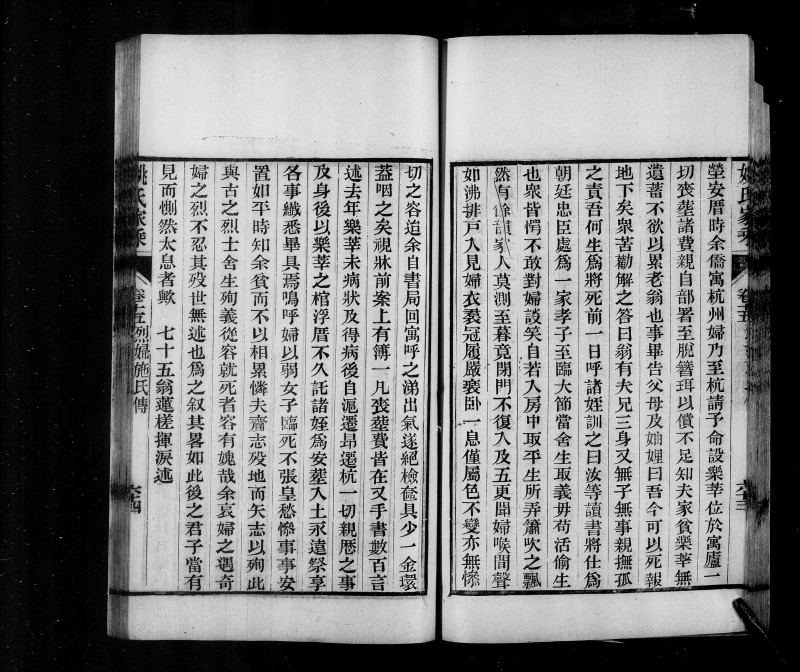 塋安厝時余僑寓杭州婦乃至杭請予命設樂莘位於寓廬一
切喪塟諸費親自部署至脫簪珥以償不足知夫家貧樂莘無
遺蓄不欲以累老翁也事畢告父母及妯娌曰吾今可以死報
地下矣衆苦勸解之答曰翁有夫兄三身又無子無事親撫孤
之責吾何生爲將死前一日呼諸姪訓之曰汝等讀書將仕爲
朝廷忠臣處爲一家孝子至臨大節當舍生取義毋苟活偷生
也衆皆愕不敢對婦談笑自若入房中取平生所弄簫吹之飄
然有餘韻家人莫測至暮竟閉門不復入及五更聞婦喉間聲
如沸排戶入見婦衣裂冠履嚴裝臥一息僅屬色不變亦無慘
切之容追余自書局回寓呼之涕出氣遂絕檢奩具少一金環
葢咽之矣視牀前案上有簿一凡喪塟費皆在又手書數百言
述去年樂莘未病狀及得病後自滬遷昻遷杭一切親厯之事
及身後以樂莘之棺浮厝不久託諸姪爲安塟入土永遠祭享
各事纎悉畢具焉嗚呼婦以弱女子臨死不張皇愁慘事事安
置如平時知余貧而不以相累憐夫齎志歿地而矢志以殉此
與古之烈士舍生殉義從容就死者容有媿哉余哀婦之遇奇
婦之烈不忍其歿世無述也爲之叙其畧如此後之君子當有
見而惻然太息者歟　七十五翁蓮槎揮淚述
姚氏家乘
卷十五烈婦施氏傳